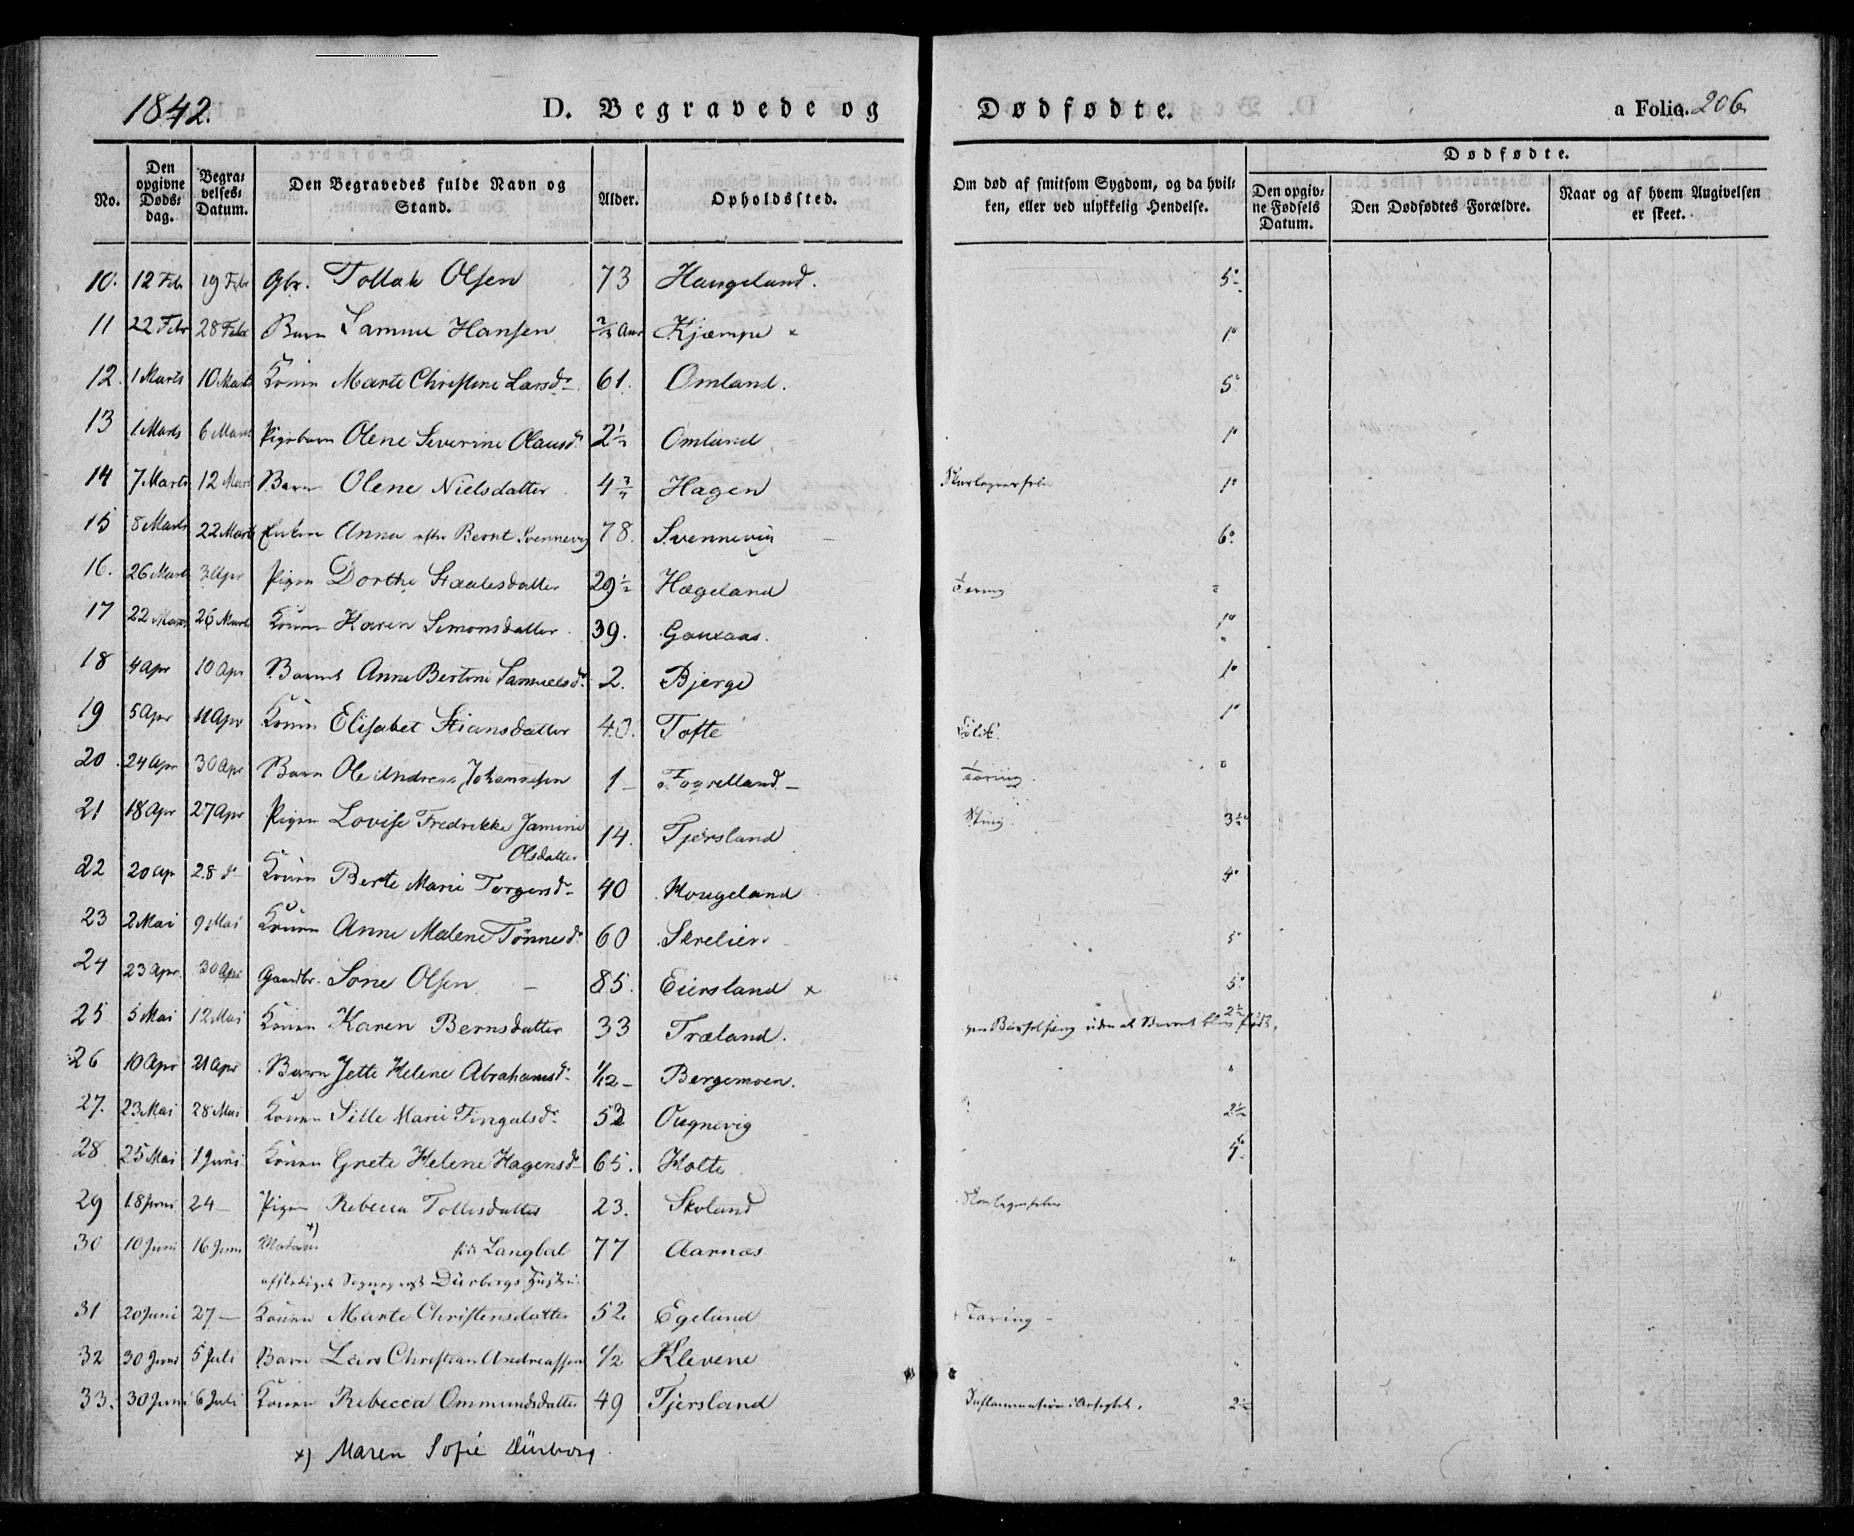 1842. D. Begravede og Dødfødte. a Folio. 206.
No. Den opgivne Døds-dag. Begra-velses-Datum. Den Begravedes fulde Navn og Stand. Alder. Opholdssted. Om død af smitsom Sygdom, og da hvil-ken, eller ved ulykkelig Hendelse. Dødfødte. Den opgiv-ne Fødsels Datum. Den Dødfødtes Forældre. Naar og af hvem Angivelsen er skeet.
10. 12 Febr 19 Febr Gbr. Tollak Olsen 73 Haugeland. 5
11 22 Febr 28 Febr Barn Hansen Aar Kjæmpe 1
12. 1 Marts 10 Marts Konen Marte Christine Larsd 61. Omland. 5
13 1 Marts 6 Marts Pigebarn Olene Severine Olausd 2½ Omland 1
14 7 Marts 12 Marts Barn Olene Nielsdatter 4 Hagen 1
15 8 Marts 22 Marts Enken Anna efter Bernt Svennevig 78. Svennevig 6
16. 26 Marts 3 Apr Pigen Dorthe Staalesdatter 29½ Hægeland Tæring
17 22 Marts 26 Marts Konen Karen Simonsdatter 39. 1
18 4 Apr 10 Apr Barnet Anne Bertine Samuelsd 2. Bjerge 1
19 5 Apr 11 Apr Konen Elisabet Stiansdatter 40. Tofte 1
20. 24 Apr 30 Apr Barn Ole Andreas Johannesen 1 Fogelland Tæring
21 18 Apr 27 Apr Pigen Lovise Fredrikke Jamine 14. Tjersland Sting 3½
Olsdatter
22 20 Ap 28 d Konen Berte Marie Torgersd 40 Hougeland 4
23 2 Mai 9 Mai Konen Anne Malene Tønnesd 60 Skrelier 5
24 23 Apr. 30 Apr Gaardbr. Sone Olsen 85. Eiersland x 5
25 5 Mai 12 Mai Konen Karen Berntsdatter 33 Træland. Barselseng uden at Barnet blev født. 2½
26 10 Apr 21 Apr Barn Jette Helene Abrahamsd 1/12 Bergemoen.
27. 23 Mai 28 Mai Konen Sille Marie Fingalsd Ougnevig 2½
28 25 Mai 1 Juni Konen Grete Helene Hagensd 65. Holte
29 18 Juni 24 Pigen Rebecca Tollisdatter 23. Skoland
30 10 Juni 16 Juni Madam x) født Langbal 77 Aarnæs
afskediget Dürbergs Hustru
31 20 Juni 27 Konen Marte Christensdatter 52. Egeland Tæring
32 30 Juni 5 Juli Barn Lars Christian Andreassen ½ Klevene
33. 30 Juni 6 Juli Konen Rebecca Ommundsdatter 49 Tjersland Inflammation i Ansigtet. 2½
x) Maren Sofie Dürborg